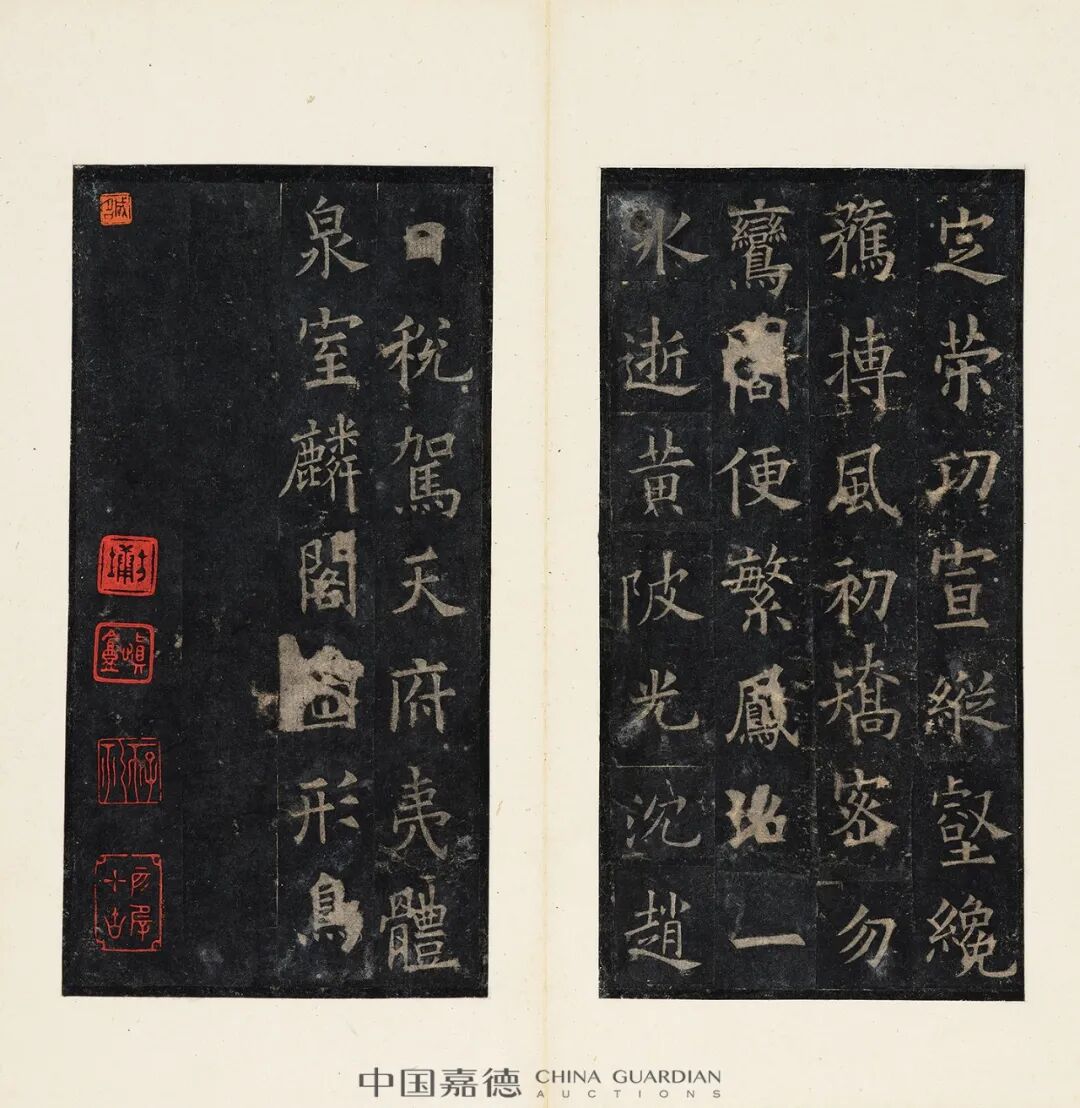 定荣功宣縱壑纔
騖摶風初矯密勿
鸞閣便繁鳳沼一
氷逝黄陂光沈趙
日税駕天府夷體
泉室麟閣圖形鳥
誠
中国嘉德 CHINA GUARDIAN
AUCTIONS